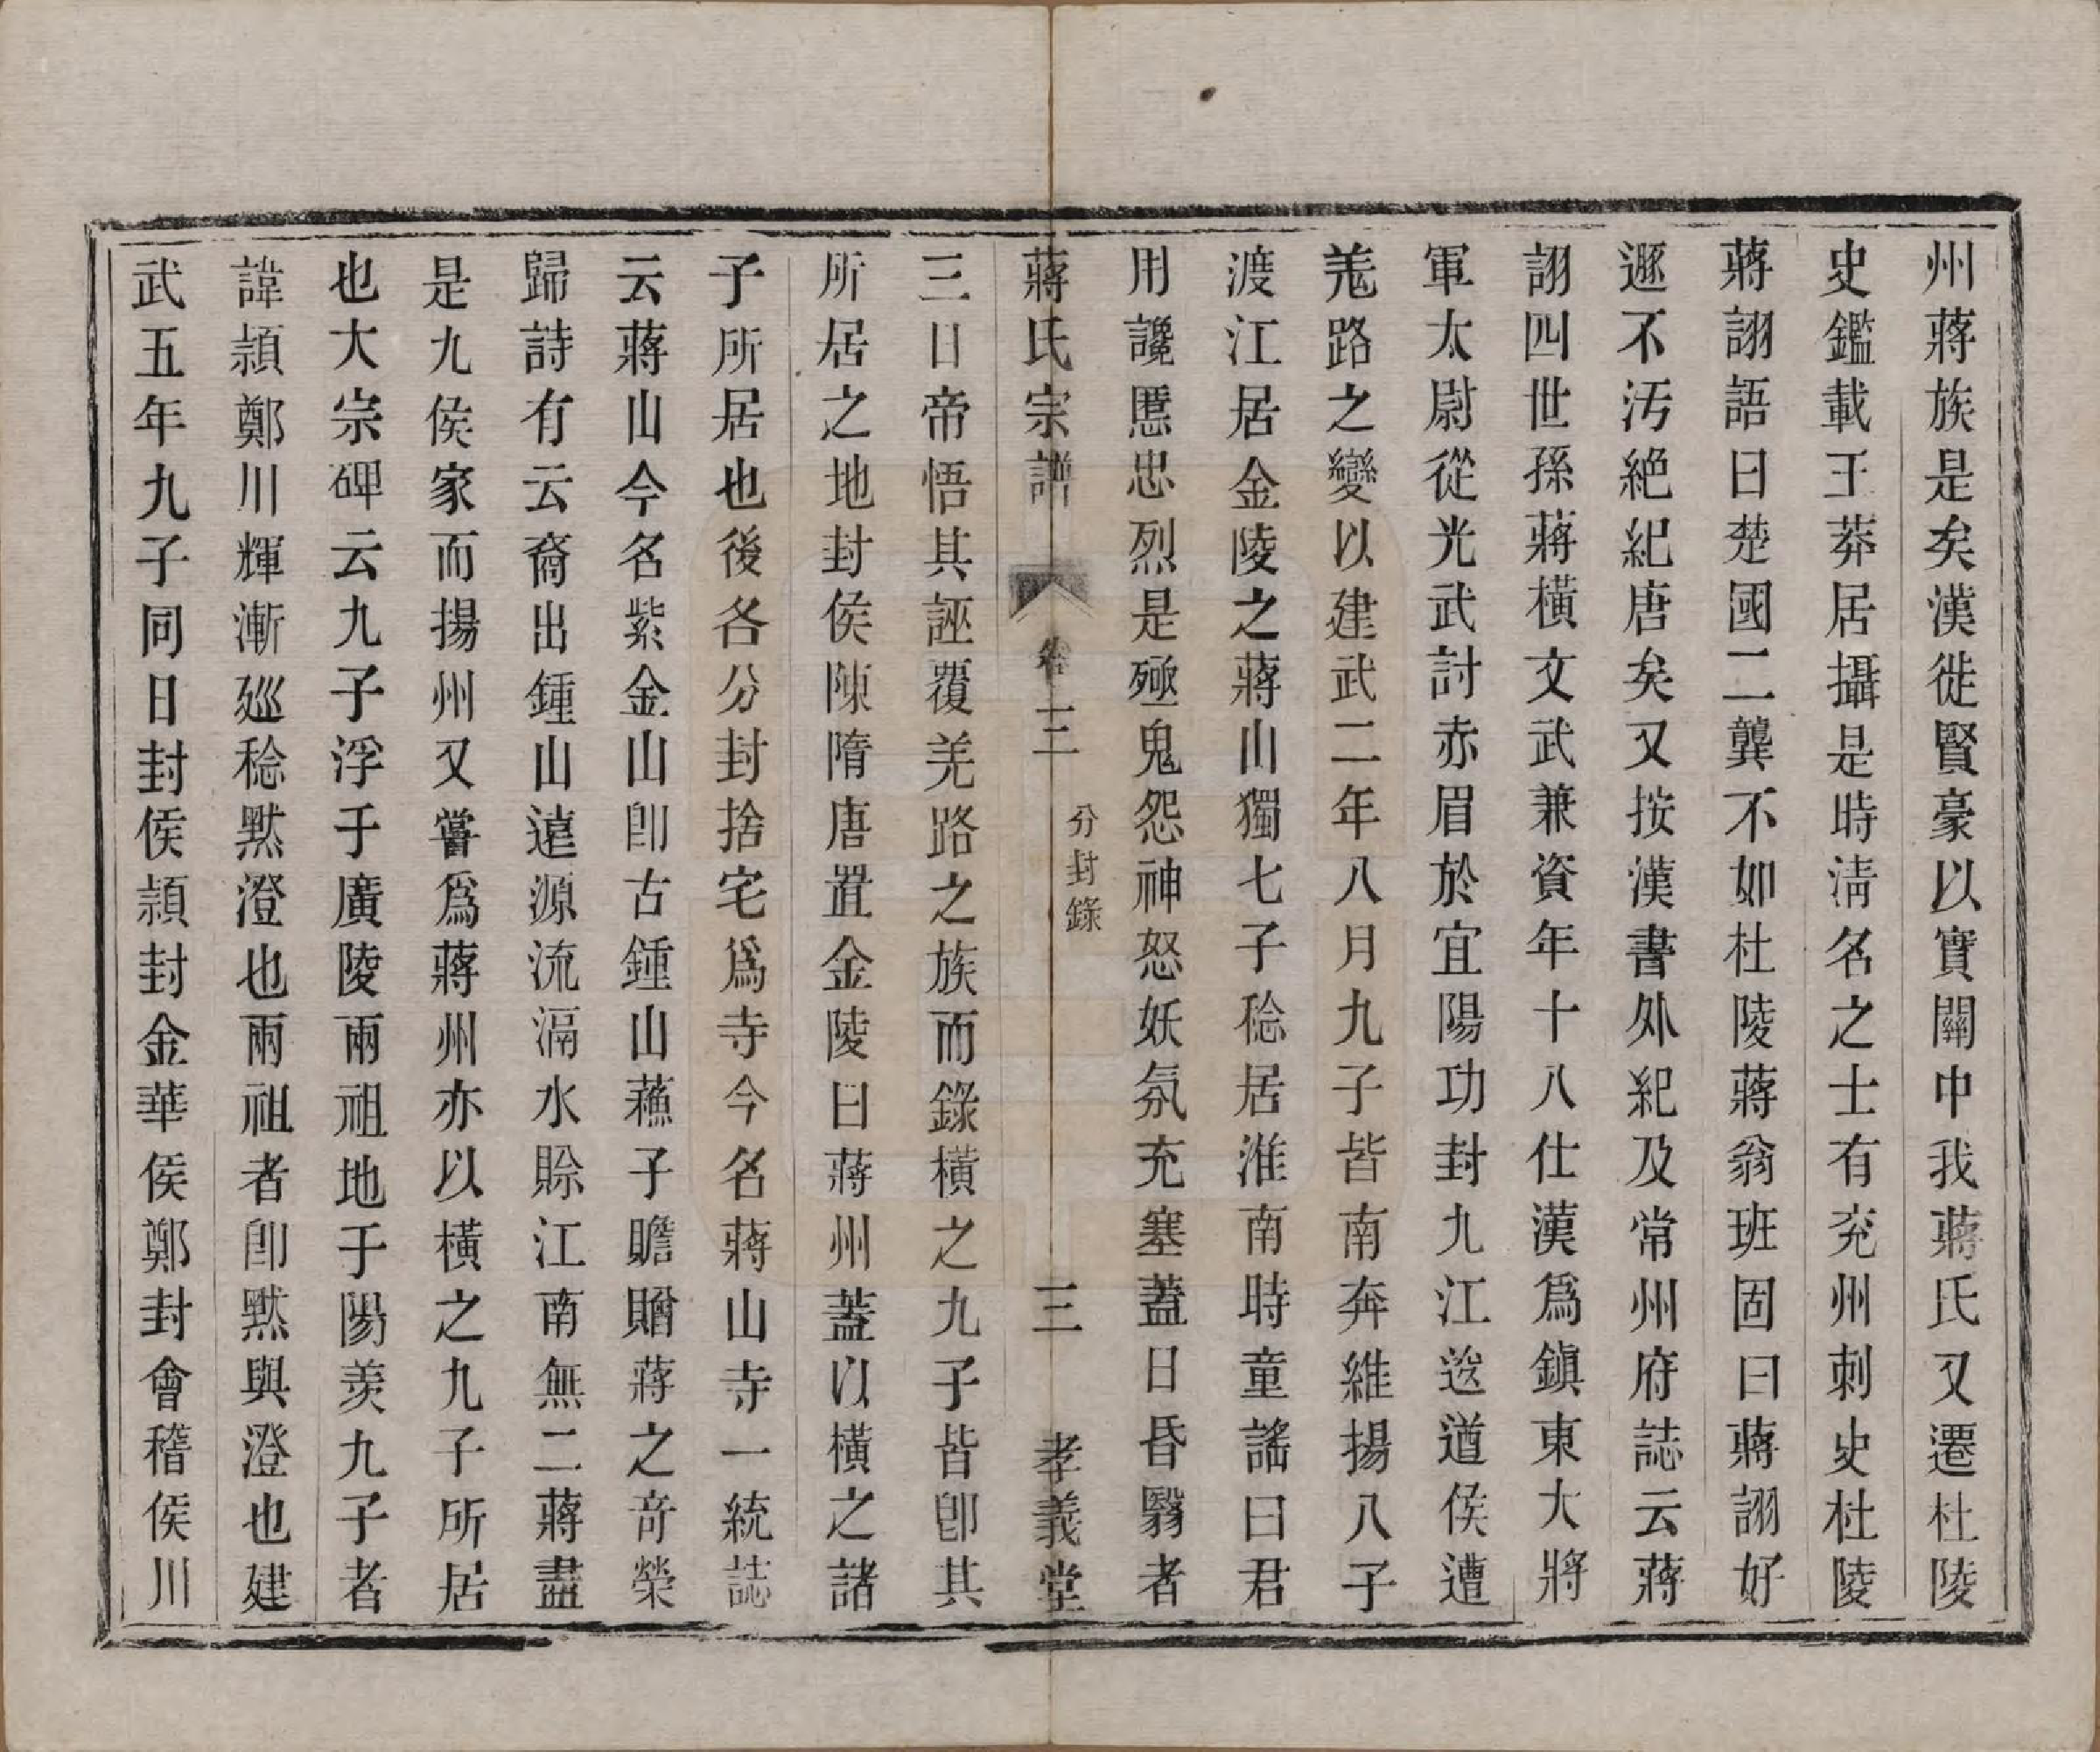 州蔣族是矣漢徙賢豪以實關中我蔣氏又遷杜陵
史鑑載王莽居攝是時淸名之士有兖州刺史杜陵
蔣詡語曰楚國二龔不如杜陵蔣翁班固曰蔣詡好
遯不汚絶紀唐矣又按漢書外紀及常州府誌云蔣
詡四世孫蔣橫文武兼資年十八仕漢爲鎭東大將
軍太尉從光武討赤眉於宜陽功封九江逡遒侯遭
羗路之變以建武二年八月九子皆南奔維揚八子
渡江居金陵之蔣山獨七子稔居淮南時童謠曰君
用讒慝忠烈是殛鬼怨神怒妖氛充塞蓋日昏翳者
蔣氏宗譜 卷三 分封錄 三 孝義堂
三日帝悟其誣覆羌路之族而錄橫之九子皆卽其
所居之地封侯陳隋唐置金陵曰蔣州蓋以橫之諸
子所居也後各分封捨宅爲寺今名蔣山寺一統誌
云蔣山今名紫金山卽古鍾山蘓子贍贈蔣之竒榮
歸詩有云裔出鍾山遠源流滆水賒江南無二蔣盡
是九侯家而揚州又嘗爲蔣州亦以橫之九子所居
也大宗碑云九子浮于廣陵兩祖地于陽羨九子者
諱頴鄭川輝漸廵稔黙澄也兩祖者卽黙與澄也建
武五年九子同日封侯頴封金華侯鄭封會稽侯川